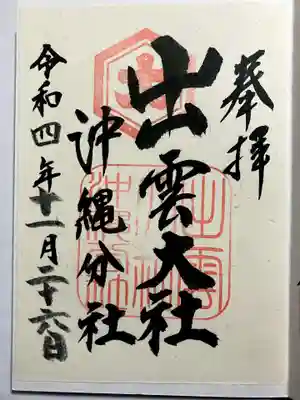 奉拝
出雲大社
沖縄分社
令和四年十一月二十六日